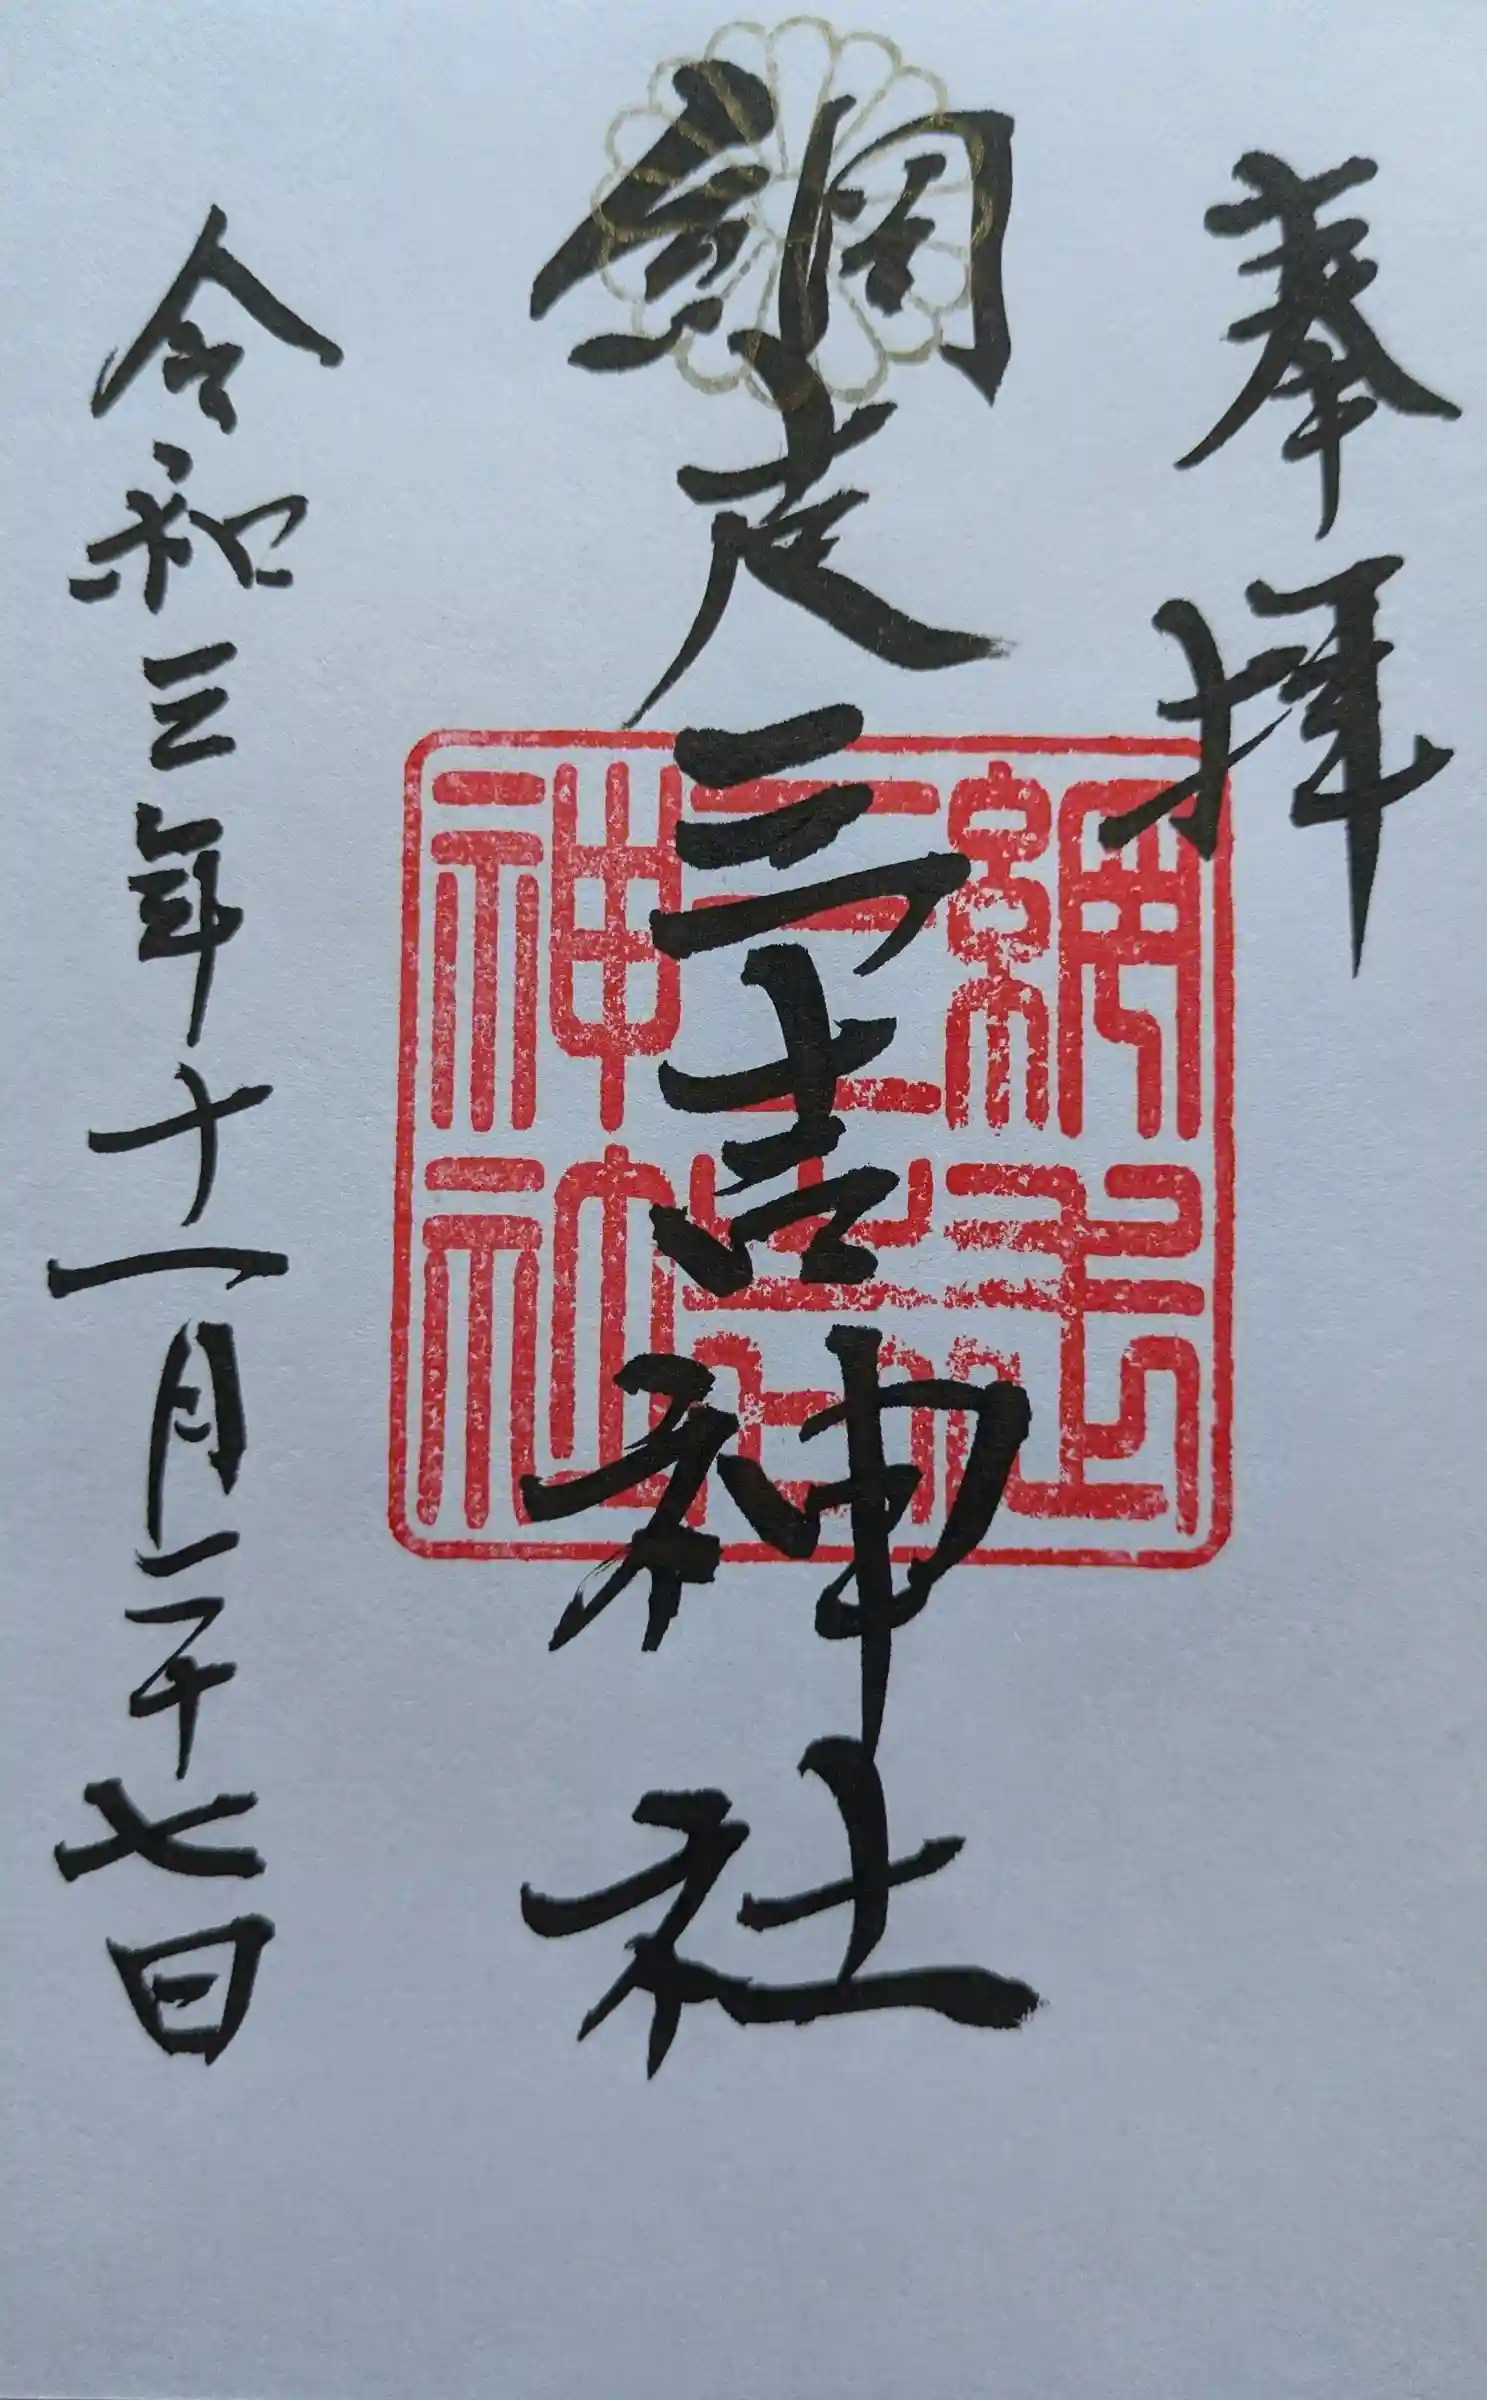 奉拝
網走三吉神社
網走三吉神社
令和三年十一月二十七日